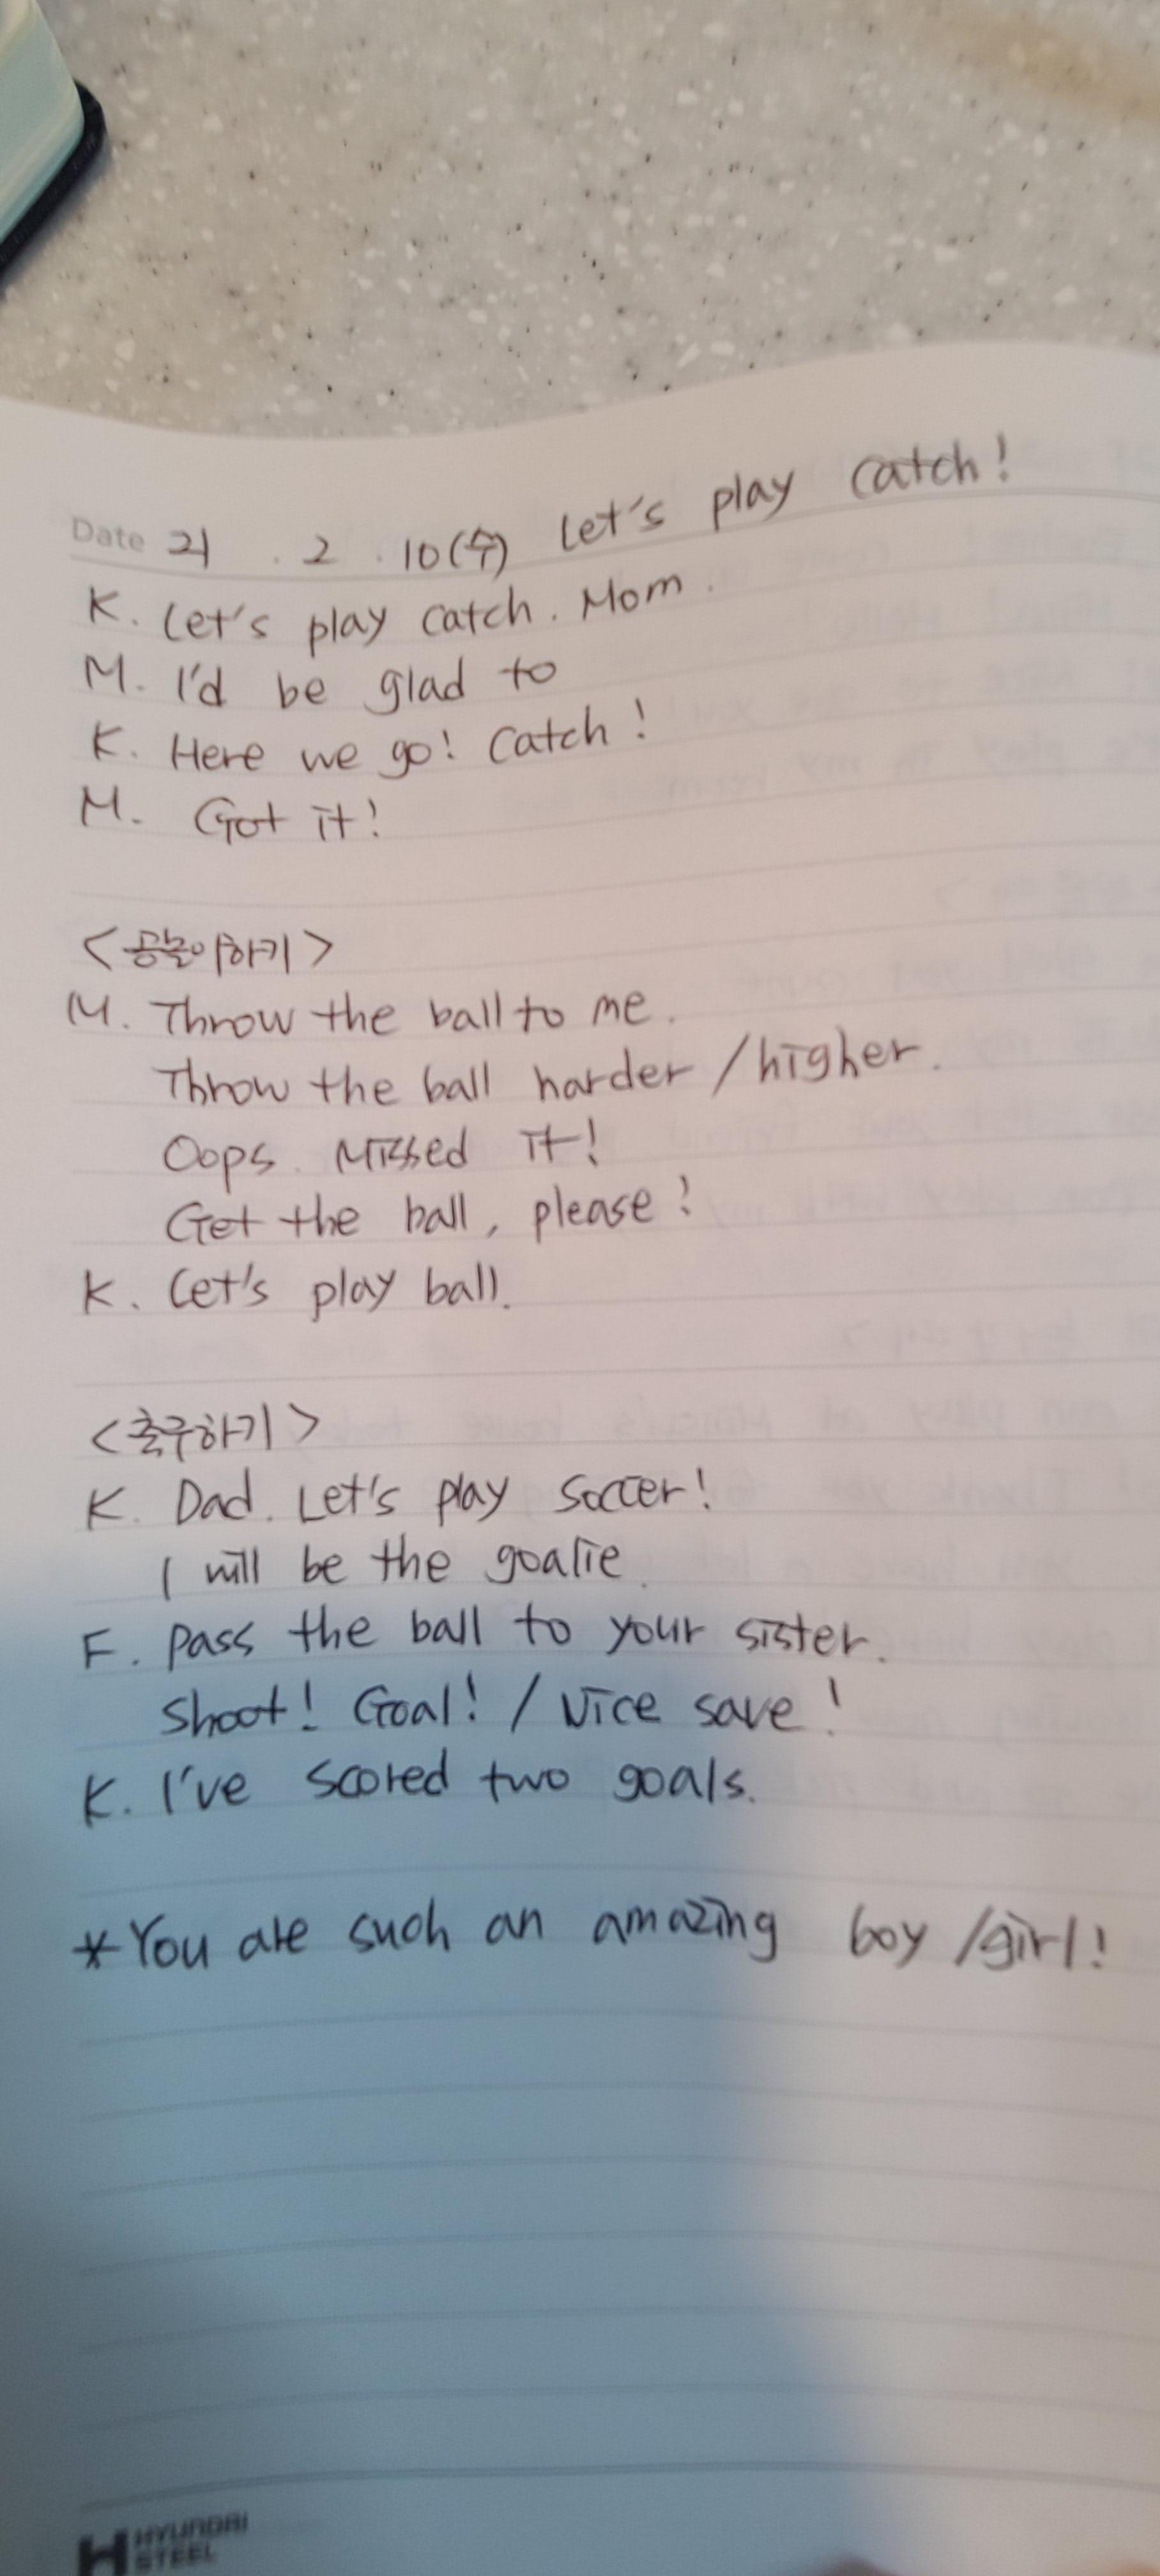 Date 21 . 2 . 10(수) Let's play catch!
K. Let's play catch. Mom.
M. I'd be glad to
K. Here we go! Catch!
M. Got it!
<공놀이하기>
M. Throw the ball to me.
Throw the ball harder / higher.
Oops. Missed it!
Get the ball, please!
K. Let's play ball.
<축구하기>
K. Dad. Let's play soccer!
I will be the goalie.
F. Pass the ball to your sister.
Shoot! Goal! / Nice save!
K. I've scored two goals.
*You are such an amazing boy /girl!
HYUNDAI
STEEL